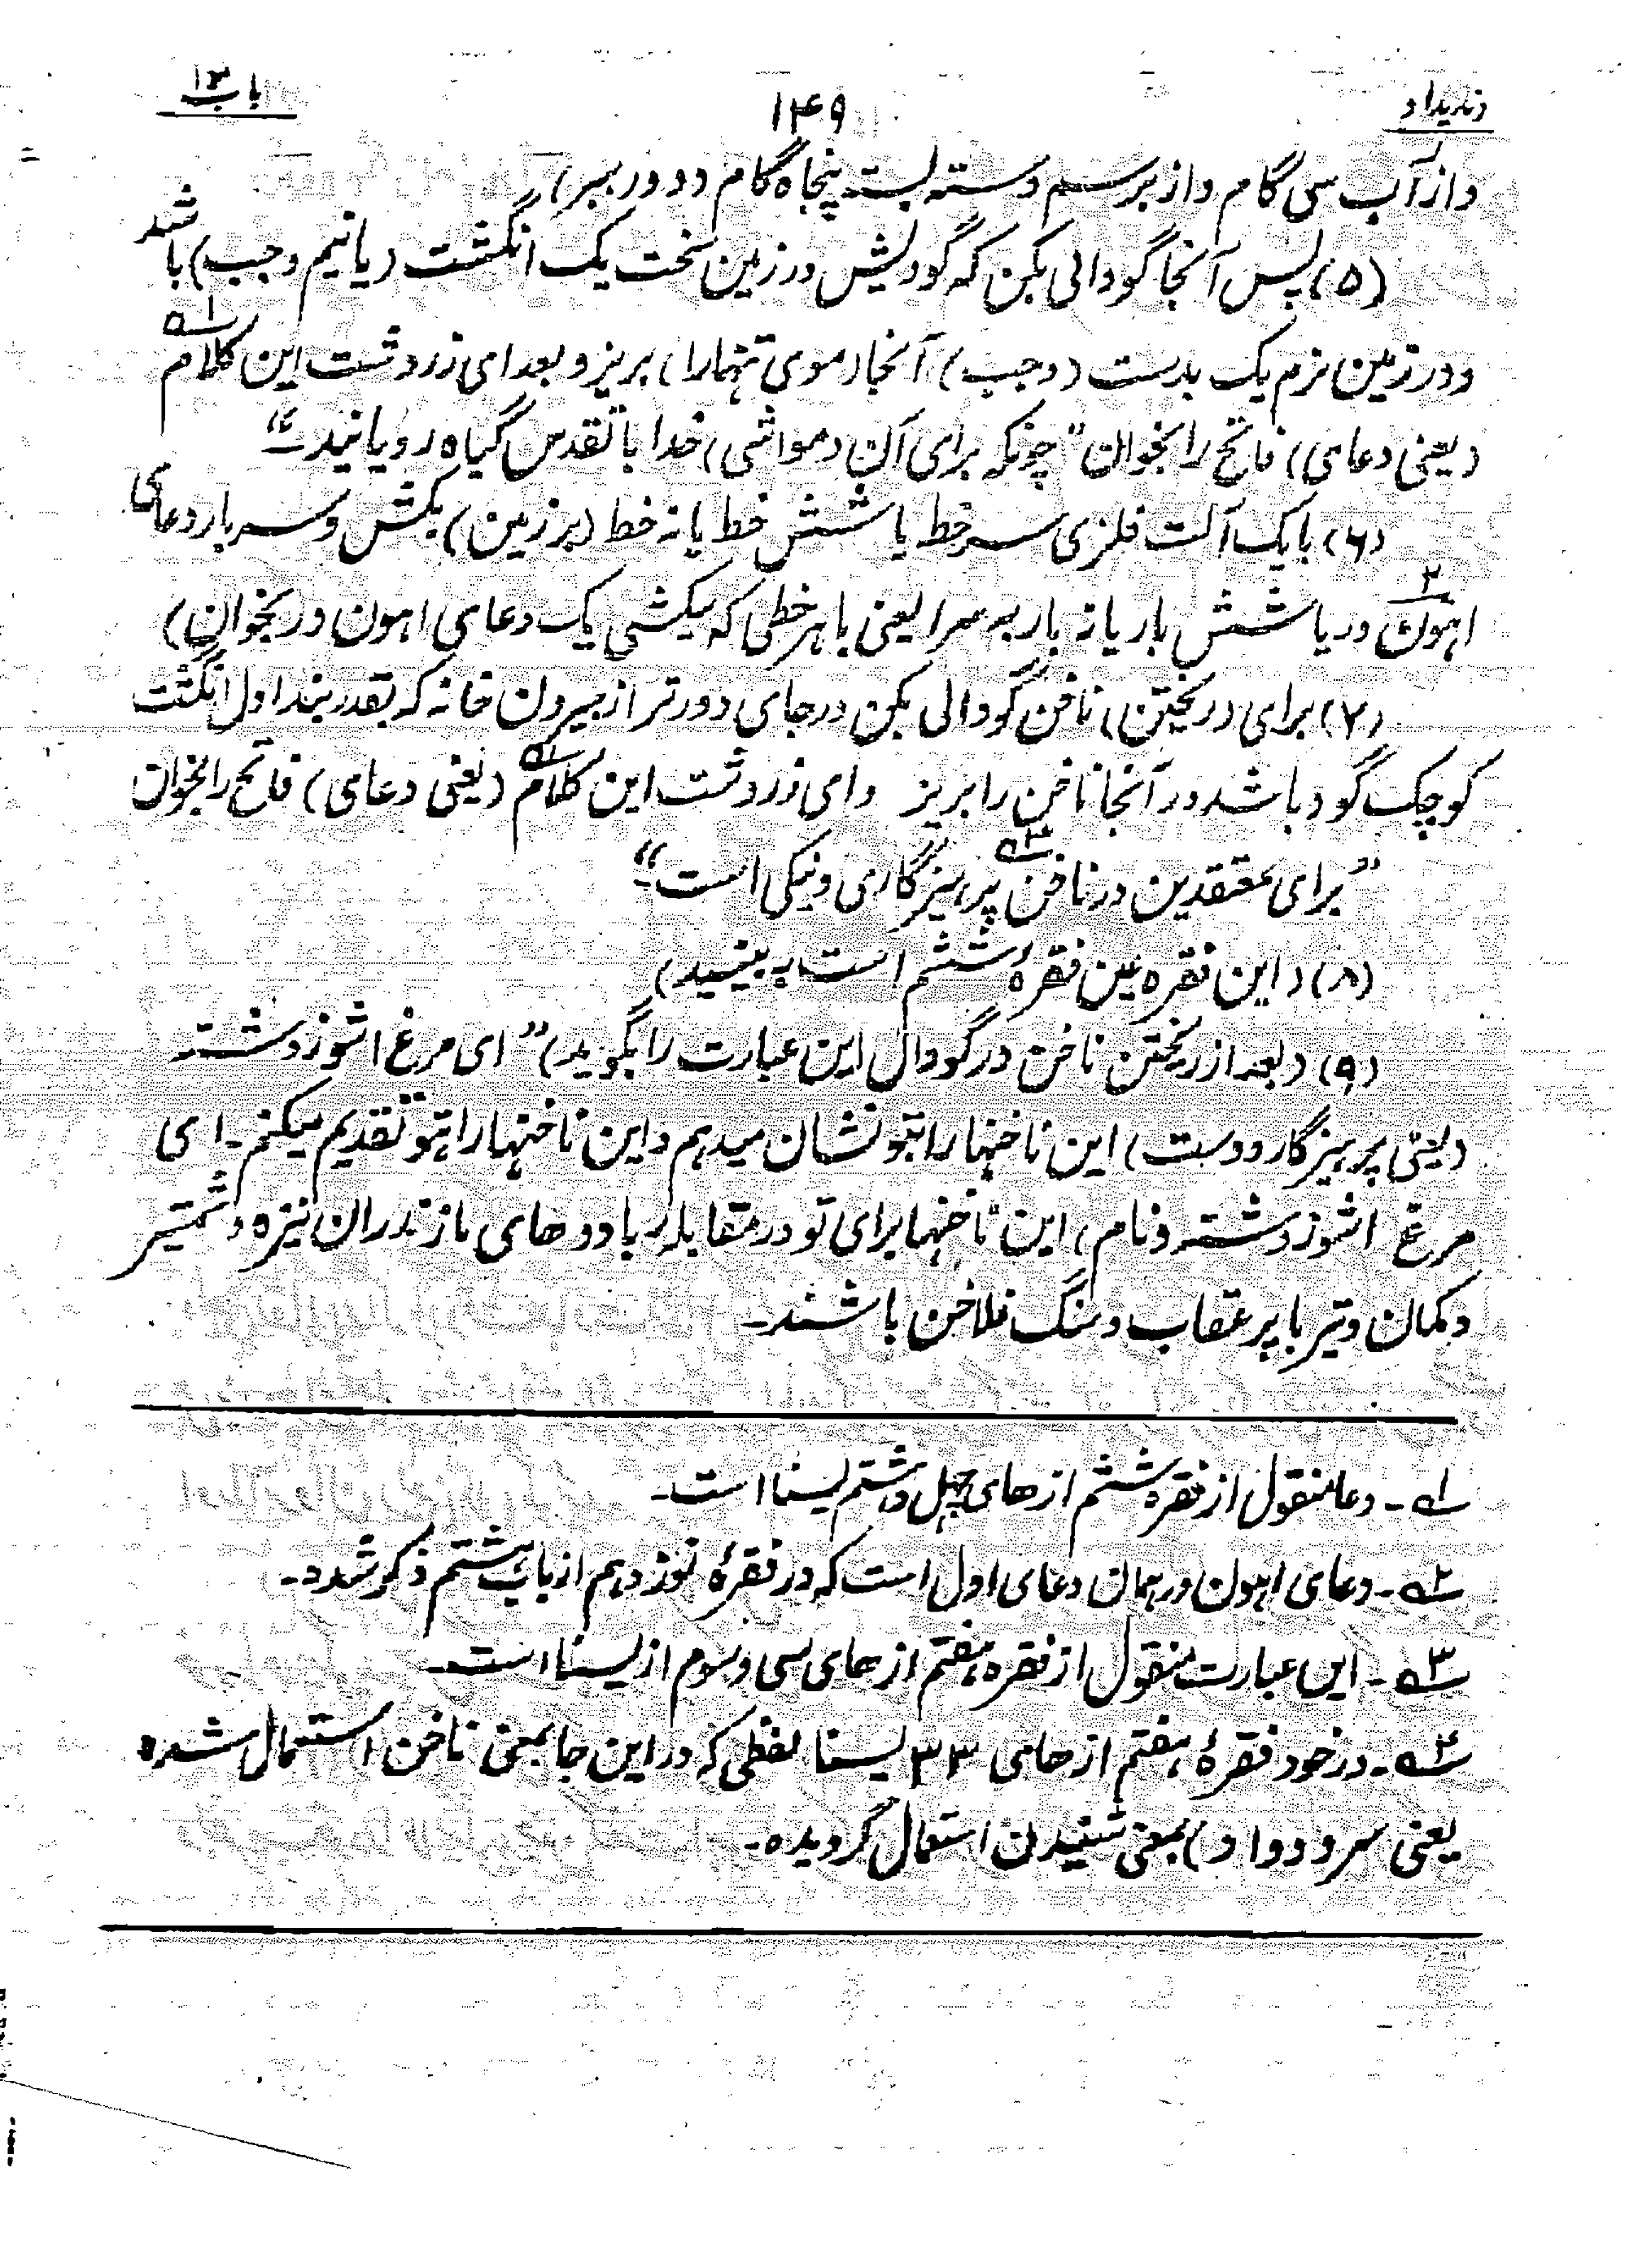 وندیداد
۱۴۹
باب ۱۳
و از آب سی گام و از برسم دسته بسته پنجاه گام (دور ببر)
(۵) پس آنجا گودالی بکن که گودیش در زمین سخت یک انگشت (یا نیم وجب) باشد
و در زمین نرم یک بدست (وجب) آنجا (موی تنها را) بریز و بعد ای زردشت این کلام ۱؎
(یعنی دعای) فاتح را بخوان "چونکه برای آن (مواشی) خدا با تقدس گیاه رویانید"
(۶) با یک آلت فلزی سه خط یا شش خط یا نه خط (بر زمین) بکش و سه بار دعای
اهون ۲ ور یا شش بار یا نه بار به سرا (یعنی با هر خطی که میکشی یک دعای اهون ور بخوان)
(۷) برای (ریختن) ناخن گودالی بکن در جای دورتر از بیرون خانه که بقدر بند اول انگشت
کوچک گود باشد در آنجا ناخن را بریز و ای زردشت این کلام (یعنی دعای) فاتح را بخوان
"برای معتقدین در ناخن پرهیزگاری و نیکی است"
(۸) (این فقره عین فقرهٔ ششم است به بینید)
(۹) (بعد از ریختن ناخن در گودال این عبارت را بگوید) "ای مرغ اشوزوشته
(یعنی پرهیزگار دوست) این ناخنها را بتو نشان میدهم و این ناخنها را بتو تقدیم میکنم۔ ای
مرغ اشوزوشته (نام) این ناخنها برای تو در مقابله با دوهای مازندران نیزه و شمشیر
و کمان و تیر با پر عقاب و سنگ فلاخن باشند۔
۱؎ ۔ دعا منقول از فقره ششم از های چهل و هشتم یسنا است۔
۲؎ ۔ دعای اهون ور همان دعای اول است که در فقرهٔ نوزدهم از باب هشتم ذکر شد۔
۳؎ ۔ این عبارت منقول از فقره هفتم از های سی و سوم از یسنا است۔
۴؎ ۔ در خود فقرهٔ هفتم از های ۳۳ یسنا لفظی که در این جا بمعنی ناخن استعمال شده
یعنی بمعنی شنیدن استعمال گردیده۔